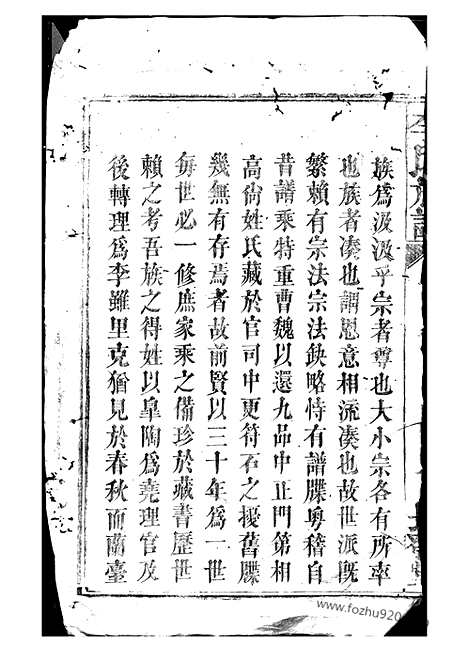 族為汲汲乎宗者尊也大小宗各有所率
也族者凑也謂恩意相流凑也故世派旣
繁賴有宗法宗法缺略恃有譜牒粵稽自
昔譜乘特重曹魏以還九品中正門第相
高尙姓氏藏於官司中更符石之擾舊牒
幾無有存焉者故前賢以三十年為一世
每世必一修庶家乘之備珍於藏書歷世
賴之考吾族之得姓以臯陶為堯理官及
後轉理爲李雖里克猶見於春秋而蘭臺
www.fozhu920